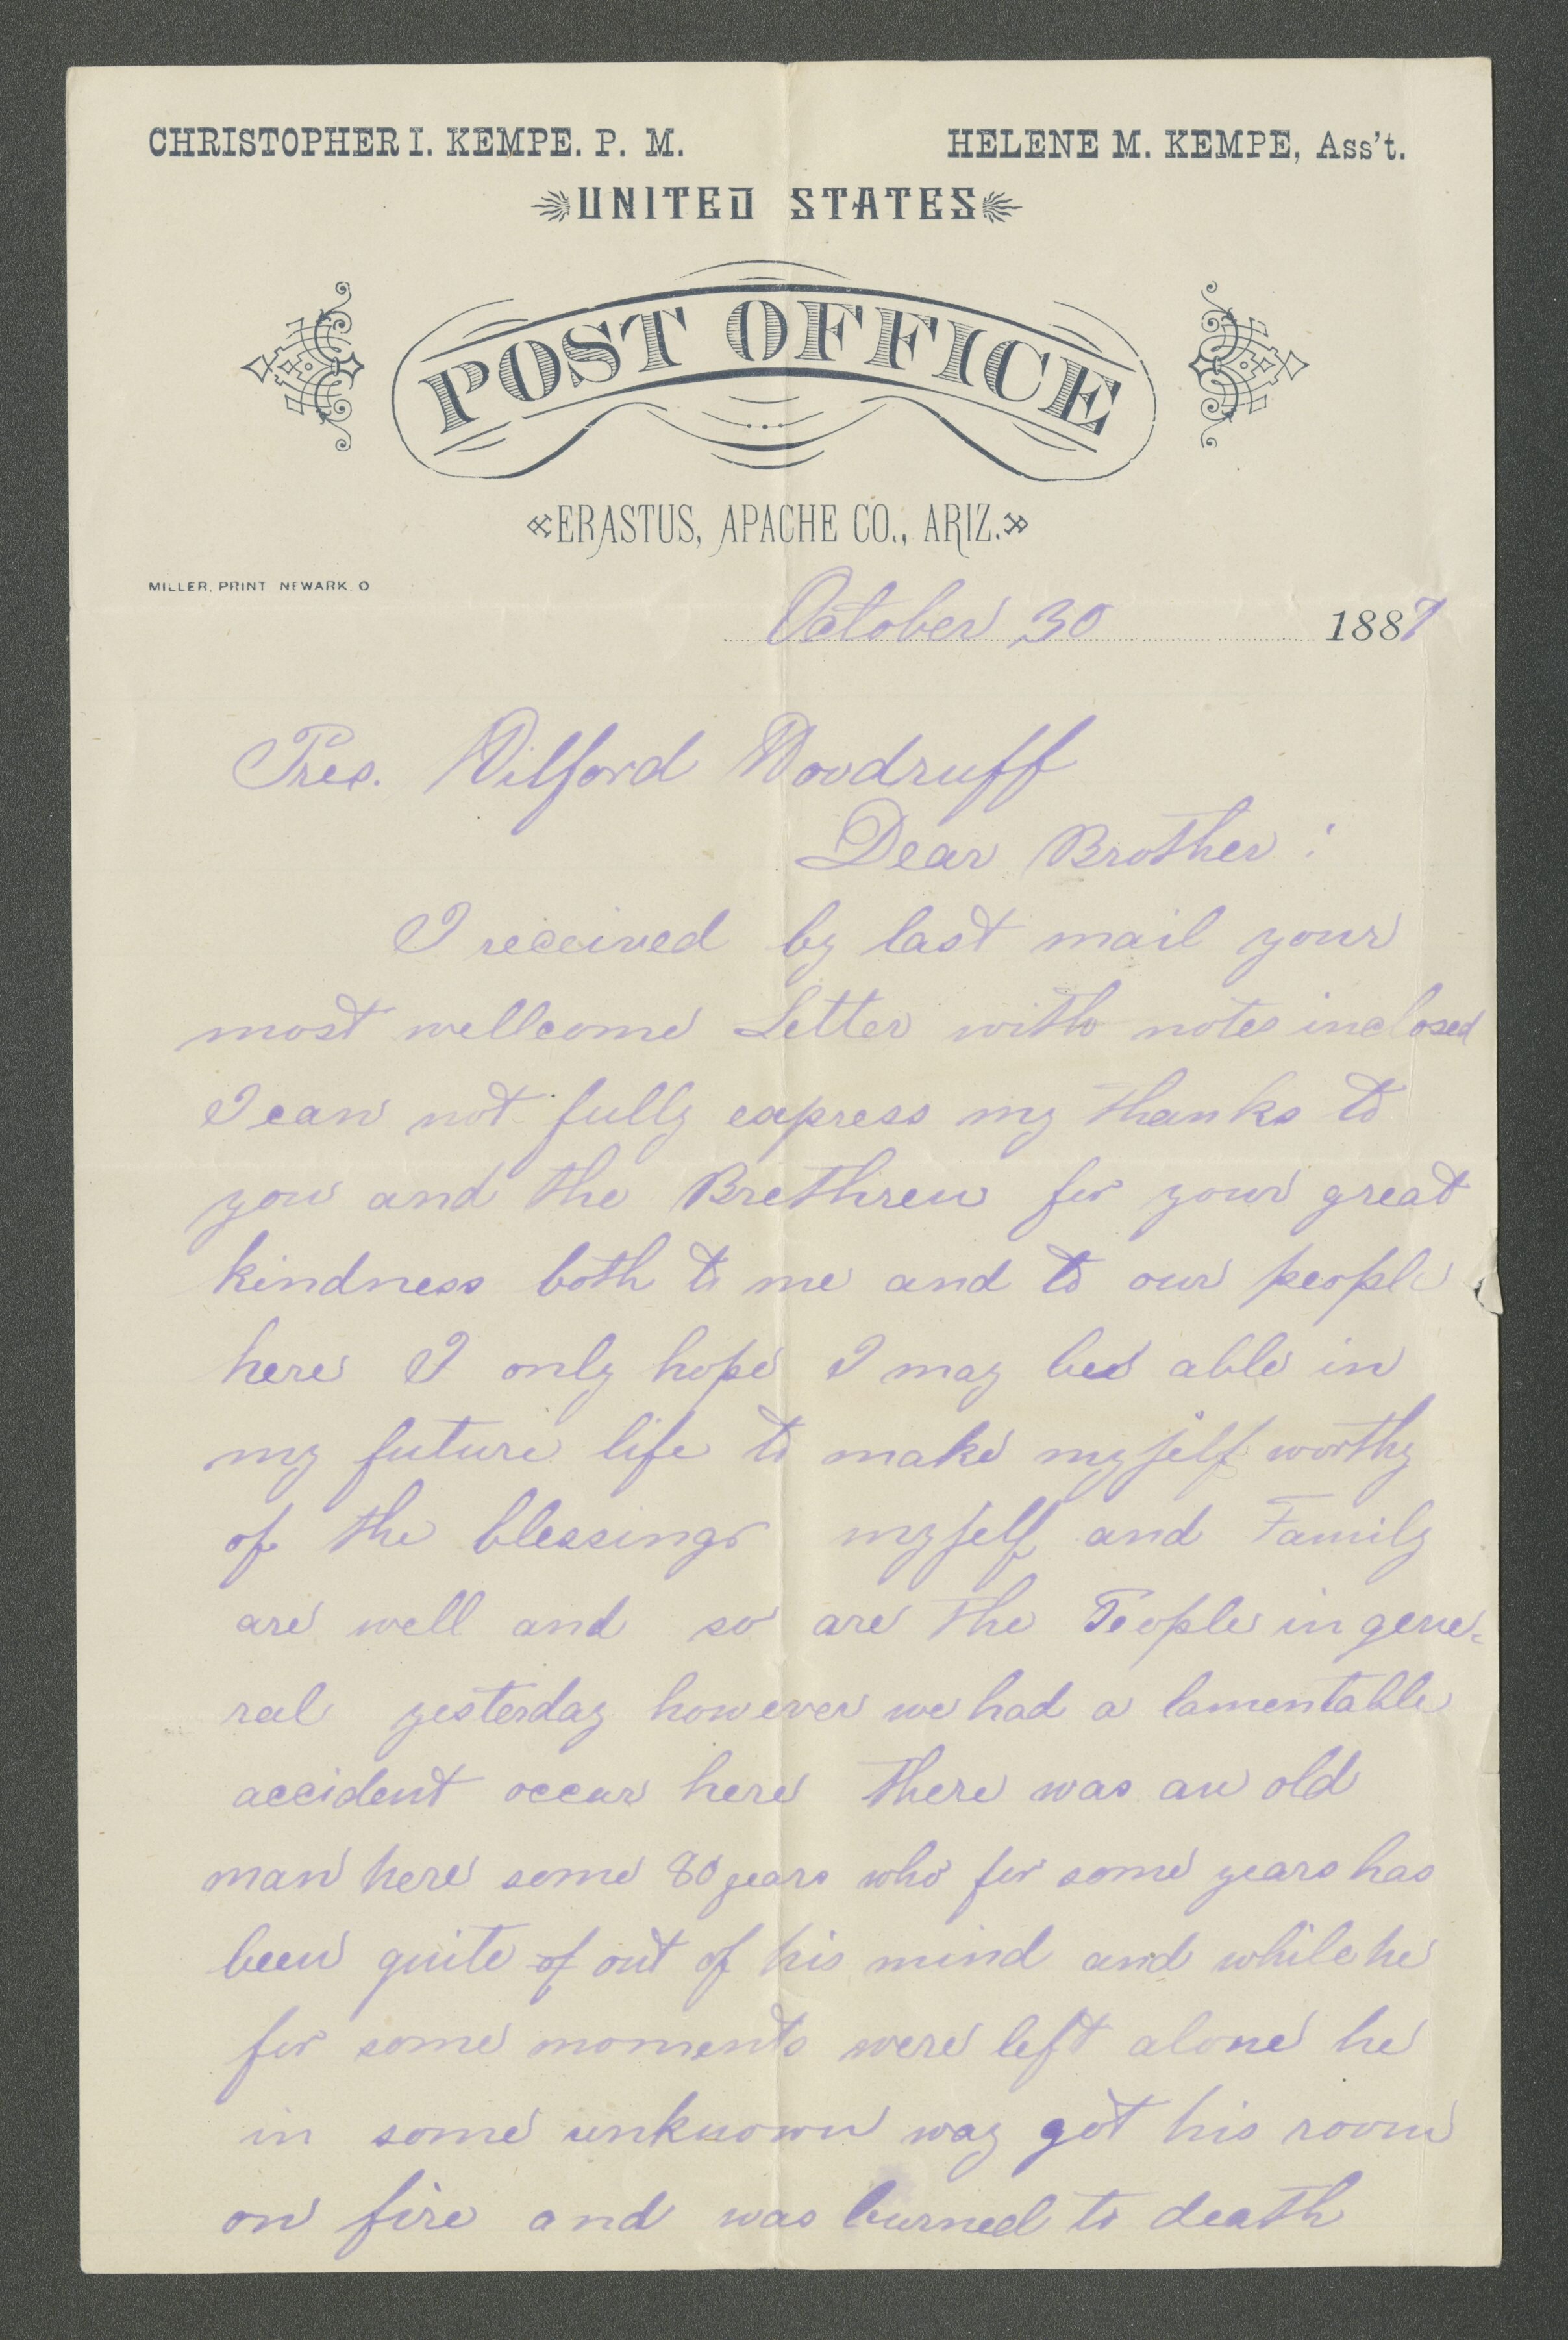 CHRISTOPHER I. KEMPE. P. M.
HELENE M. KEMPE, Ass't.
UNITED STATES
POST OFFICE
ERASTUS, APACHE CO., ARIZ.
MILLER, PRINT NEWARK, O
October 30 1887
Pres. Wilford Woodruff
Dear Brother:
I received by last mail your
most wellcome Letter with notes inclosed
I can not fully express my thanks to
you and the Brethren for your great
kindness both to me and to our people
here I only hope I may be able in
my future life to make myself worthy
of the blessings myself and Family
are well and so are the People in gene=
ral yesterday however we had a lamentable
accident occur here there was an old
man here some 80 years who for some years has
been quite of out of his mind and while he
for some moments were left alone he
in some unknown way got his room
on fire and was burned to death